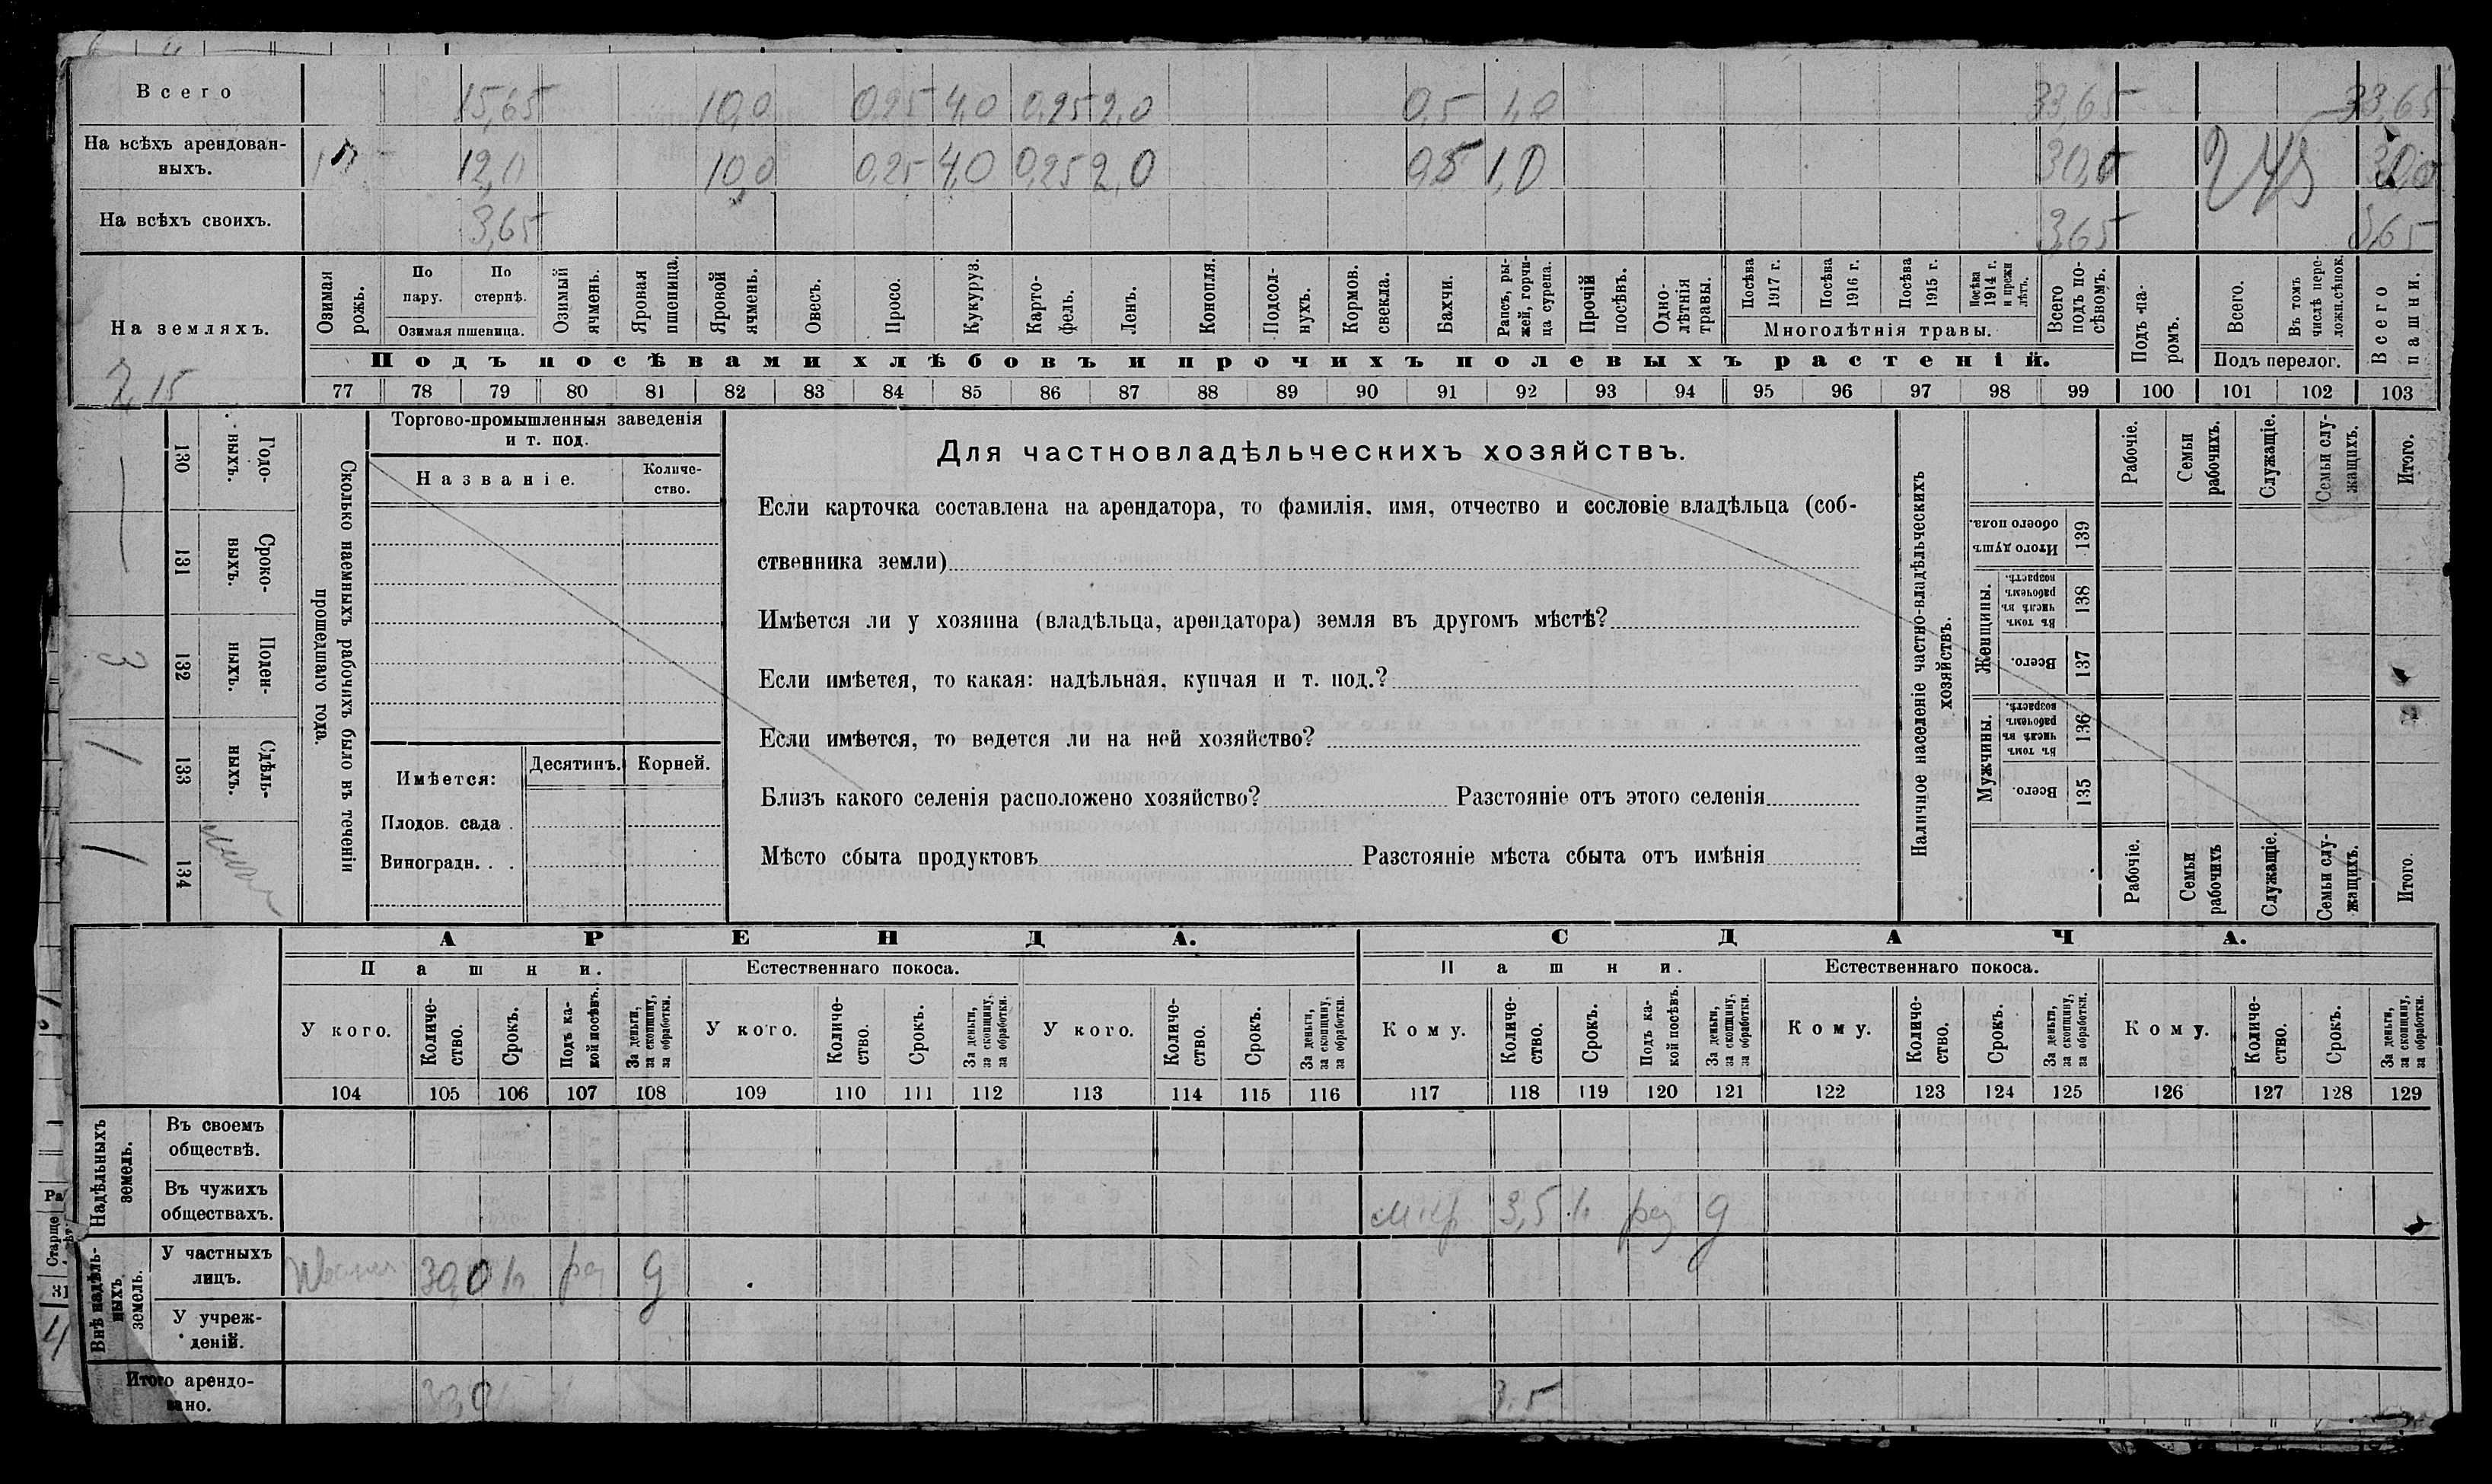 Всего 15,65 10,0 0,25 4,0 0,25 2,0 0,5 1,0 33,65 33,65
На всѣхъ арендован-
ныхъ. 12,0 10,0 0,25 4,0 0,25 2,0 0,5 1,0 30,0 30,0
На всѣхъ своихъ. 3,65 3,65 3,65
На земляхъ.
Озимая рожь.
По пару.
По стернѣ.
Озимая пшеница.
Озимый ячмень.
Яровая пшеница.
Яровой ячмень.
Овесъ.
Просо.
Кукуруз.
Карто-
фель.
Ленъ.
Конопля.
Подсол-
нухъ.
Кормов. свекла.
Бахчи.
Рапсъ, ры-
жей, горчи-
ца сурепа.
Прочій посѣвъ.
Одно-
лѣтнія травы.
Посѣва 1917 г.
Посѣва 1916 г.
Посѣва 1915 г.
Посѣва 1914 г. и прежн лѣтъ.
Многолѣтнія травы.
Всего подъ по-
сѣвомъ.
Подъ па-
ромъ.
Всего.
Въ томъ числѣ пере-
ложн.сѣнок.
Подъ перелог.
Всего пашни.
Подъ посѣвами хлѣбовъ и прочихъ полевыхъ растеній.
2,15
77 78 79 80 81 82 83 84 85 86 87 88 89 90 91 92 93 94 95 96 97 98 99 100 101 102 103
Сколько наемныхъ рабочихъ было въ теченіи
прошедшаго года.
Годо-
выхъ.
130
Сроко-
выхъ.
131
Поден-
ныхъ.
132
3
Сдѣль-
ныхъ.
133
1
134
1
Торгово-промышленныя заведенія
и т. под.
Названіе.
Количе-
ство.
Имѣется:
Десятинъ. Корней.
Плодов. сада .
Виноградн. . .
Для частновладѣльческихъ хозяйствъ.
Если карточка составлена на арендатора, то фамилія, имя, отчество и сословіе владѣльца (соб-
ственника земли)
Имѣется ли у хозяина (владѣльца, арендатора) земля въ другомъ мѣстѣ?
Если имѣется, то какая: надѣльная, купчая и т. под.?
Если имѣется, то ведется ли на ней хозяйство?
Близъ какого селенія расположено хозяйство? Разстояніе отъ этого селенія
Мѣсто сбыта продуктовъ Разстояніе мѣста сбыта отъ имѣнія
Наличное населеніе частно-владѣльческихъ
хозяйствъ.
Рабочіе.
Семьи рабочихъ.
Служащіе.
Семьи слу-
жащихъ.
Итого.
Итого душъ обоего пола. 139
Женщины.
Въ томъ числѣ въ рабочемъ возрастѣ. 138
Всего. 137
Мужчины.
Въ томъ числѣ въ рабочемъ возрастѣ. 136
Всего. 135
Рабочіе.
Семьи рабочихъ
Служащіе.
Семьи слу-
жащихъ.
Итого.
АРЕНДА. СДАЧА.
Пашни. Естественнаго покоса. Пашни. Естественнаго покоса.
У кого.
Количе-
ство.
Срокъ.
Подъ ка-
кой посѣвъ.
За деньги,
за скопщину,
за обработки.
У кого.
Количе-
ство.
Срокъ.
За деньги,
за скопщину,
за обработки.
У кого.
Количе-
ство.
Срокъ.
За деньги,
за скопщину,
за обработки.
Кому.
Количе-
ство.
Срокъ.
Подъ ка-
кой посѣвъ.
За деньги,
за скопщину,
за обработки.
Кому.
Количе-
ство.
Срокъ.
За деньги,
за скопщину,
за обработки.
Кому.
Количе-
ство.
Срокъ.
За деньги,
за скопщину,
за обработки.
104 105 106 107 108 109 110 111 112 113 114 115 116 117 118 119 120 121 122 123 124 125 126 127 128 129
Надѣльныхъ
земель.
Въ своемъ
обществѣ.
Въ чужихъ
обществахъ. 3,5 д
Внѣ надѣль-
ныхъ
земель.
У частныхъ
лицъ. 30,0 д
У учреж-
деній.
Итого арендо-
вано. 30,0 3,5
Старше
31
4